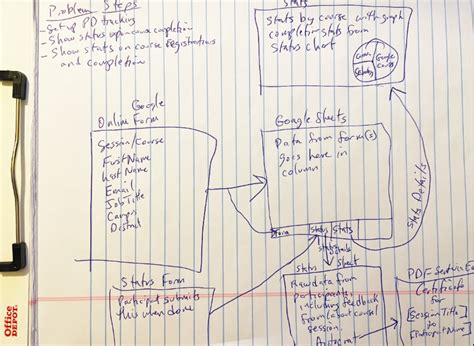 Problem Steps
- Set up PD tracking
- Show status upon course completion
- Show stats on course registrations
and completion
Stats
Stats by course with graph
completion stats from
status chart
Google
Google
Online Form
Session/Course
First Name
Last Name
Email
Job Title
Campus
District
Google Sheets
Data from form(s)
goes here in
column
Form
Status
Stats
Stats Details
Status Form
Participant submits
this when done
Status Sheet
Raw data from
participants
including feedback
from/about course/
session.
PDF Service
Certificate
for
[Session Title]
to
[Participant Name]
Office
DEPOT